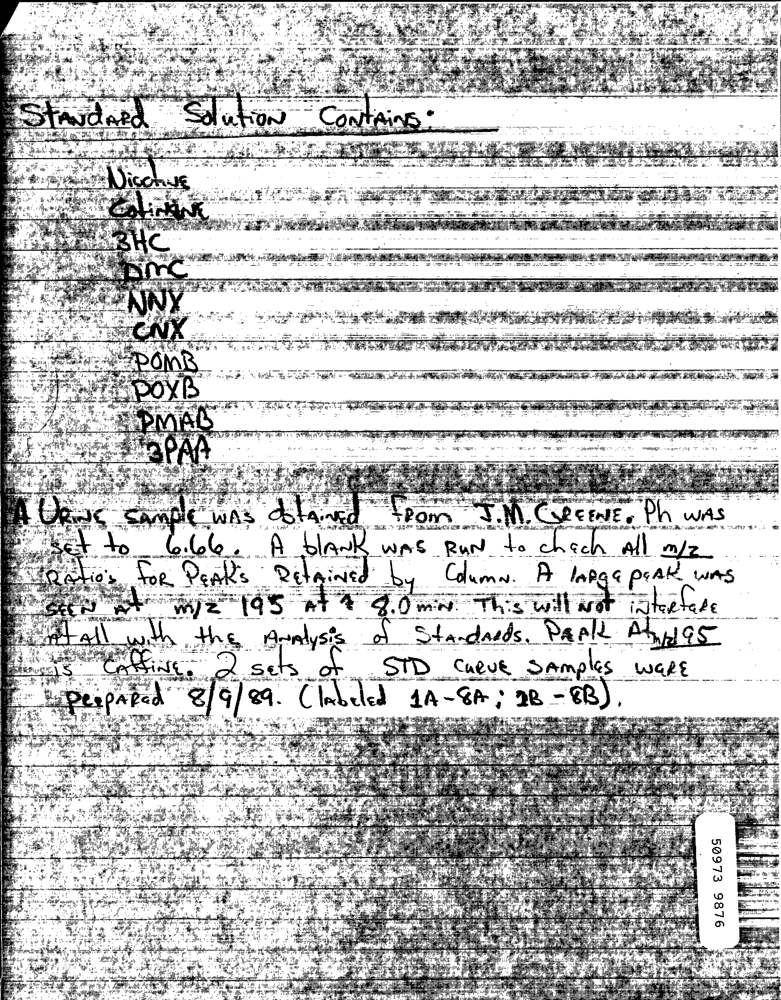 Standard Solution Contains:
Nicotine
Cotinine
3HC
DMC
NNX
CNX
POMB
POYB
PMAB
3PAA
A Urine sample was obtained from J.M. Greene. Ph was
set to 6.66. A blank was run to check all m/z
Ratio's for Peak's Retained by Column. A large peak was
seen at m/z 195 at ≈ 8.0 min. This will not interfere
at all with the Analysis of Standards. Peak At m/z 195
is Caffine. 2 sets of STD Curve Samples were
prepared 8/9/89. (labeled 1A-8A; 1B-8B).
50973 9876